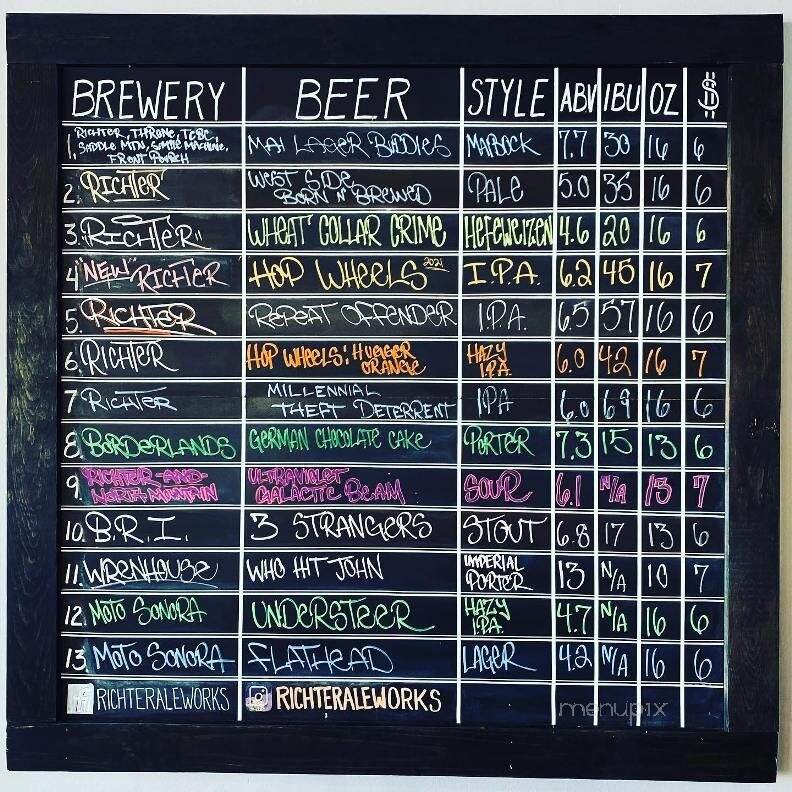 BREWERY BEER STYLE ABV IBU OZ $
1. RICHTER, THRONE, TCBC, SADDLE MTN, SIMPLE MACHINE, FRONT PORCH MAI LAGER BUDDIES MAIBOCK 7.7 30 16 6
2. RICHTER WEST SIDE BORN N' BREWED PALE 5.0 35 16 6
3. "RICHTER" WHEAT COLLAR CRIME HEFEWEIZEN 4.6 20 16 6
4 "NEW" RICHTER HOP WHEELS 2021 I.P.A. 6.2 45 16 7
5. RICHTER REPEAT OFFENDER I.P.A. 6.5 57 16 6
6. RICHTER HOP WHEELS: HUEGER ORANGE HAZY I.P.A. 6.0 42 16 7
7 RICHTER MILLENNIAL THEFT DETERRENT IPA 6.0 69 16 6
8 BORDERLANDS GERMAN CHOCOLATE CAKE PORTER 7.3 15 13 6
9 RICHTER-AND-NORTH MOUNTAIN ULTRAVIOLET GALACTIC BEAM SOUR 6.1 N/A 13 7
10. B.R.I. 3 STRANGERS STOUT 6.8 17 13 6
11. WRENHOUSE WHO HIT JOHN IMPERIAL PORTER 13 N/A 10 7
12. MOTO SONORA UNDERSTEER HAZY I.P.A. 4.7 N/A 16 6
13. MOTO SONORA FLATHEAD LAGER 4.2 N/A 16 6
RICHTERALEWORKS RICHTERALEWORKS
menupix